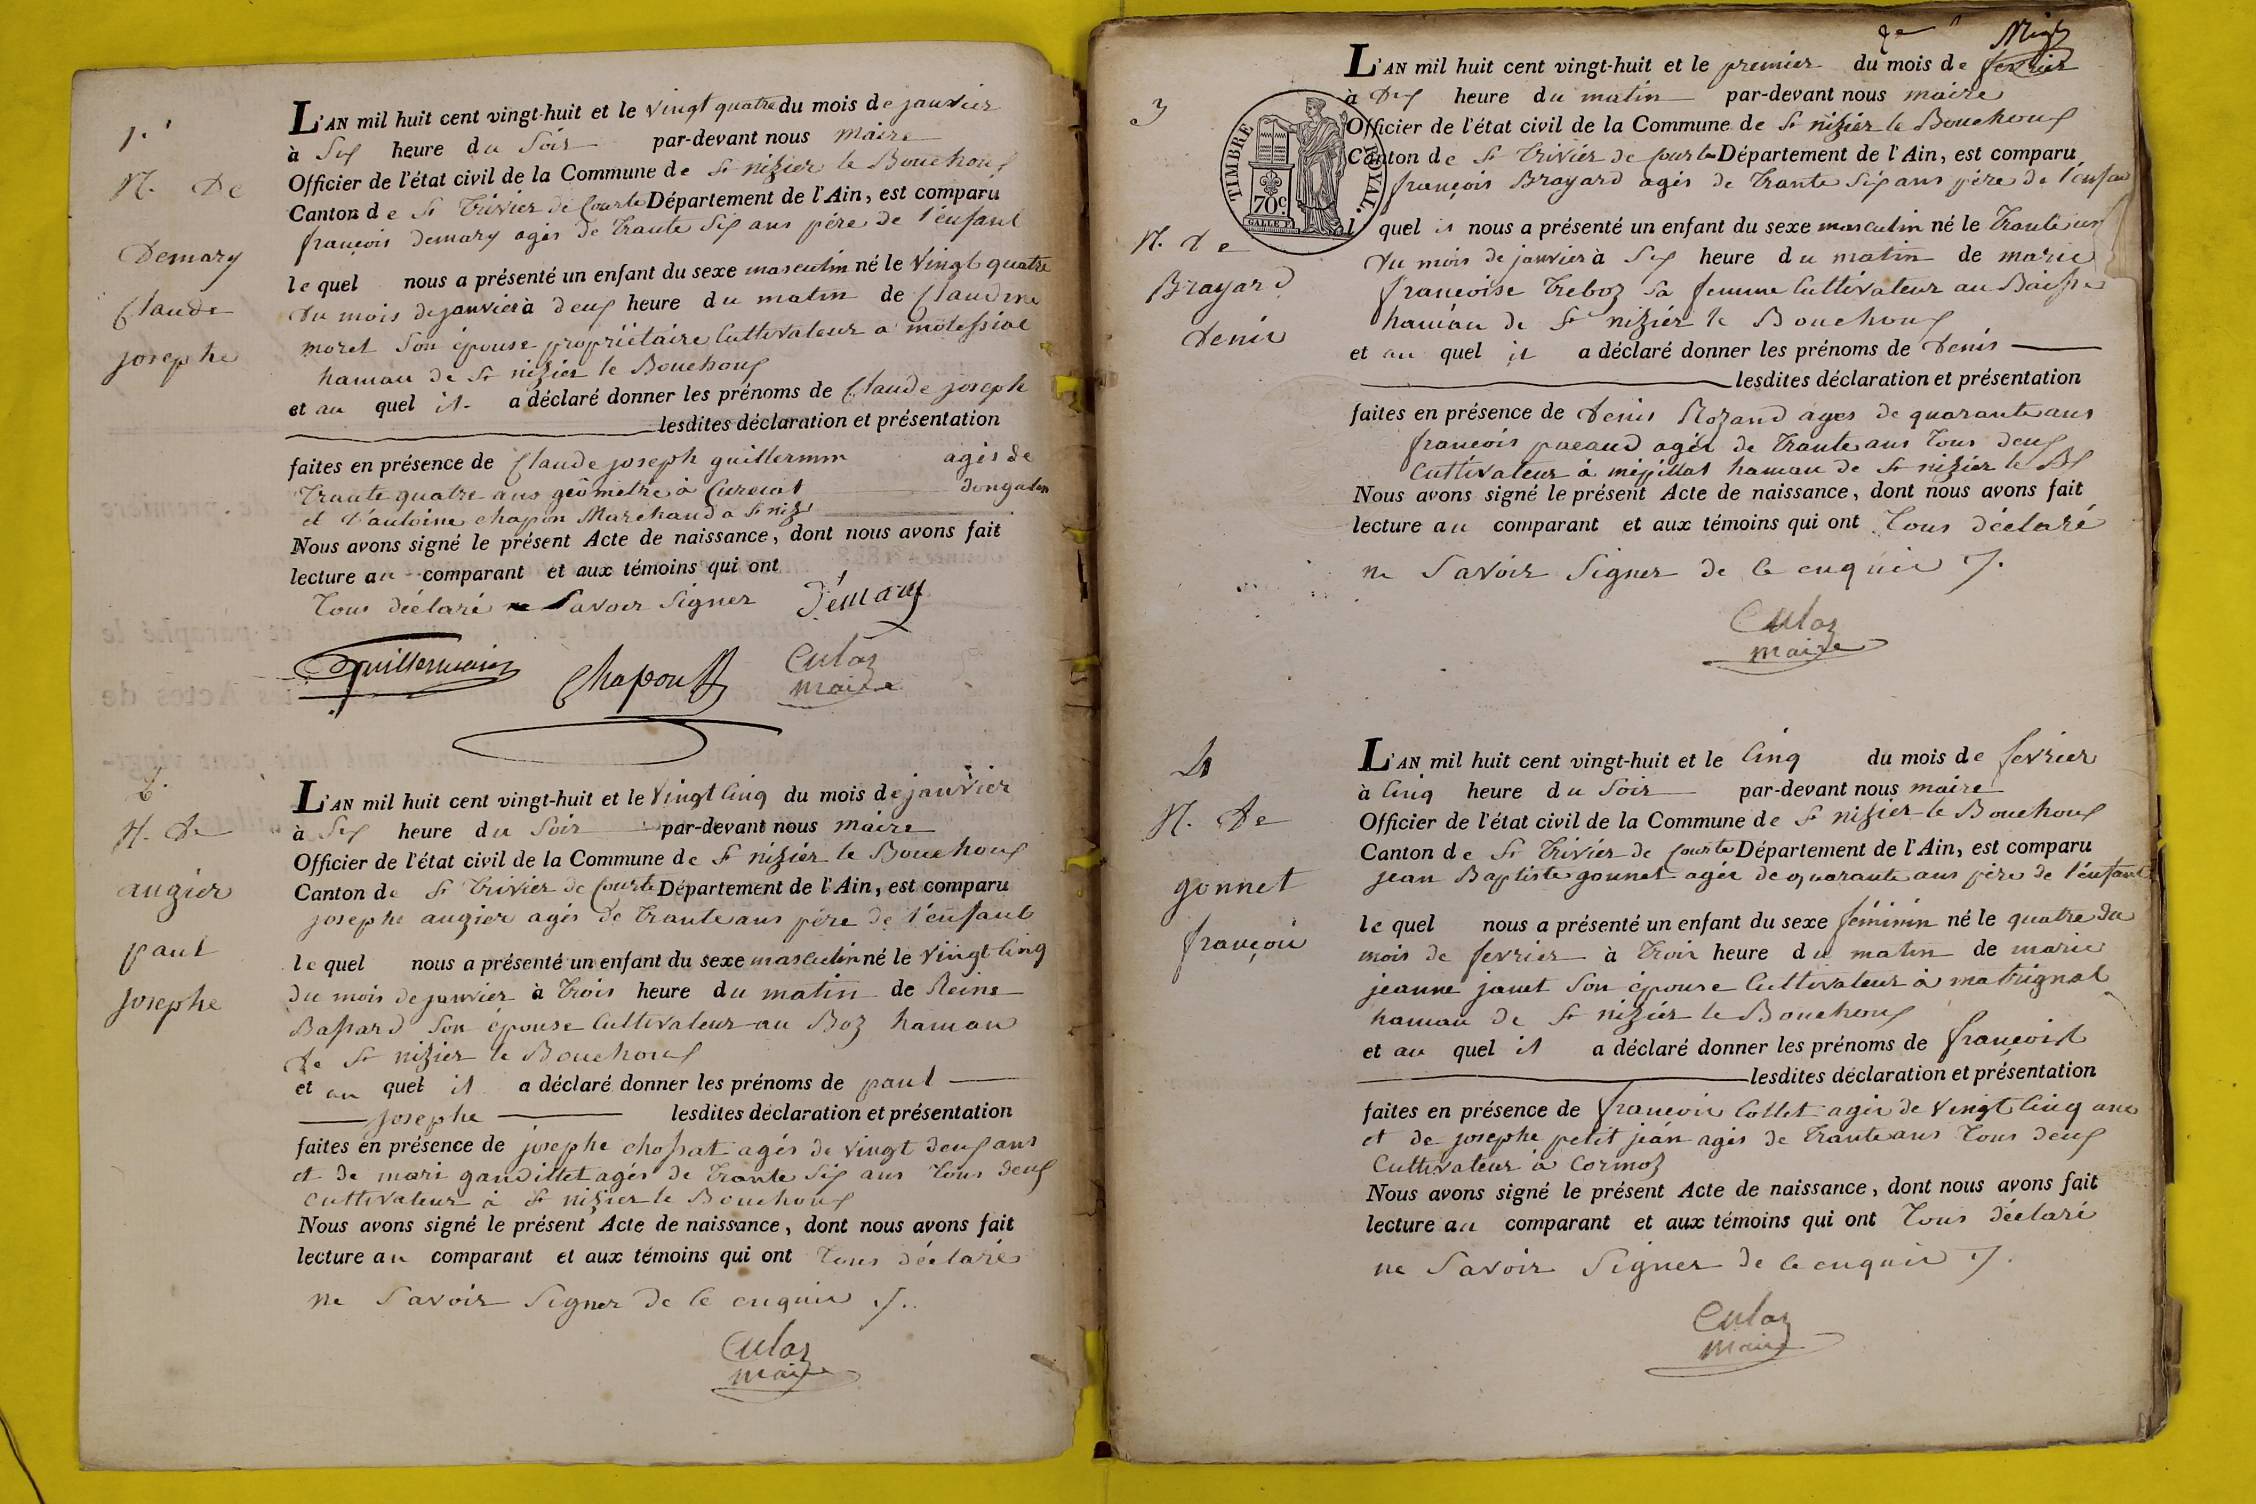 1.er
N. De
Demary
Claude
josephe
L'AN mil huit cent vingt-huit et le vingt quatre du mois de janvier
à Six heure du Soir par-devant nous maire
Officier de l'état civil de la Commune de St nizier le Bouchoux
Canton de St Trivier de Courte Département de l'Ain, est comparu
françois demary agés de Trante Six ans pére de l'énfant
le quel nous a présenté un enfant du sexe masculin né le Vingt quatre
du mois de janvier à deux heure du matin de Claudine
moret Son épouse propriétaire Cultivateur a
hamau de St nizier le Bouchoux
et au quel il a déclaré donner les prénoms de Claude joseph
lesdites déclaration et présentation
faites en présence de Claude joseph guillermin agés de
Trante quatre ans géométre à Curciat dongalon
et d'antoine chapon Marchand a St niz
Nous avons signé le présent Acte de naissance, dont nous avons fait
lecture au comparant et aux témoins qui ont
Tous déclaré Savoir Signer Démary
Guillermin Chapon Culaz
maire
2.
N. De
augier
paul
josephe
L'AN mil huit cent vingt-huit et le Vingt Cinq du mois de janvier
à Six heure du Soir par-devant nous maire
Officier de l'état civil de la Commune de St nizier le Bouchoux
Canton de St Trivier de Courte Département de l'Ain, est comparu
josephe augier agés de Trante ans pére de l'énfant
le quel nous a présenté un enfant du sexe masculin né le Vingt Cinq
du mois de janvier à Trois heure du matin de Reine
Bassard Son épouse Cultivateur au Boz hamau
de St nizier le Bouchoux
et au quel il a déclaré donner les prénoms de paul
josephe lesdites déclaration et présentation
faites en présence de josephe chossat agés de vingt deux ans
et de mari gandillet agés de Trante Six ans Tous deux
Cultivateur à St nizier le Bouchoux
Nous avons signé le présent Acte de naissance, dont nous avons fait
lecture au comparant et aux témoins qui ont Tous déclaré
ne Savoir Signer de ce enquis /.
Culaz
maire
3
N. de
Brayard
denis
TIMBRE ROYAL.
70c.
L'AN mil huit cent vingt-huit et le premier du mois de fevrier
à Dix heure du matin par-devant nous maire
Officier de l'état civil de la Commune de St nizier le Bouchoux
Canton de St Trivier de Courte Département de l'Ain, est comparu
françois Brayard agés de Trante Six ans pére de l'énfant
l quel il nous a présenté un enfant du sexe masculin né le Trante un
du mois de janvier à Six heure du matin de marie
françoise Treboz Sa femme Cultivateur au
hamau de St nizier le Bouchoux
et au quel il a déclaré donner les prénoms de denis
lesdites déclaration et présentation
faites en présence de denis Rozand agés de quarante ans
françois pacaud agés de Trante ans Tous deux
Cultivateur à mépillat hamau de St nizier le Bx
Nous avons signé le présent Acte de naissance, dont nous avons fait
lecture au comparant et aux témoins qui ont Tous déclaré
ne Savoir Signer de ce enquis /.
Culaz
maire
4
N. De
gonnet
françois
L'AN mil huit cent vingt-huit et le Cinq du mois de fevrier
à Cinq heure du Soir par-devant nous maire
Officier de l'état civil de la Commune de St nizier le Bouchoux
Canton de St Trivier de Courte Département de l'Ain, est comparu
jean Baptiste gonnet agés de quarante ans pére de l'énfant
le quel nous a présenté un enfant du sexe féminin né le quatre du
mois de fevrier à Trois heure du matin de marie
jeanne janet Son épouse Cultivateur à matrignat
hamau de St nizier le Bouchoux
et au quel il a déclaré donner les prénoms de
lesdites déclaration et présentation
faites en présence de françois Collet agés de Vingt Cinq ans
et de josephe petit jéan agés de Trante ans Tous deux
Cultivateur à Cormoz
Nous avons signé le présent Acte de naissance, dont nous avons fait
lecture au comparant et aux témoins qui ont Tous déclaré
ne Savoir Signer de ce enquis /.
Culaz
maire